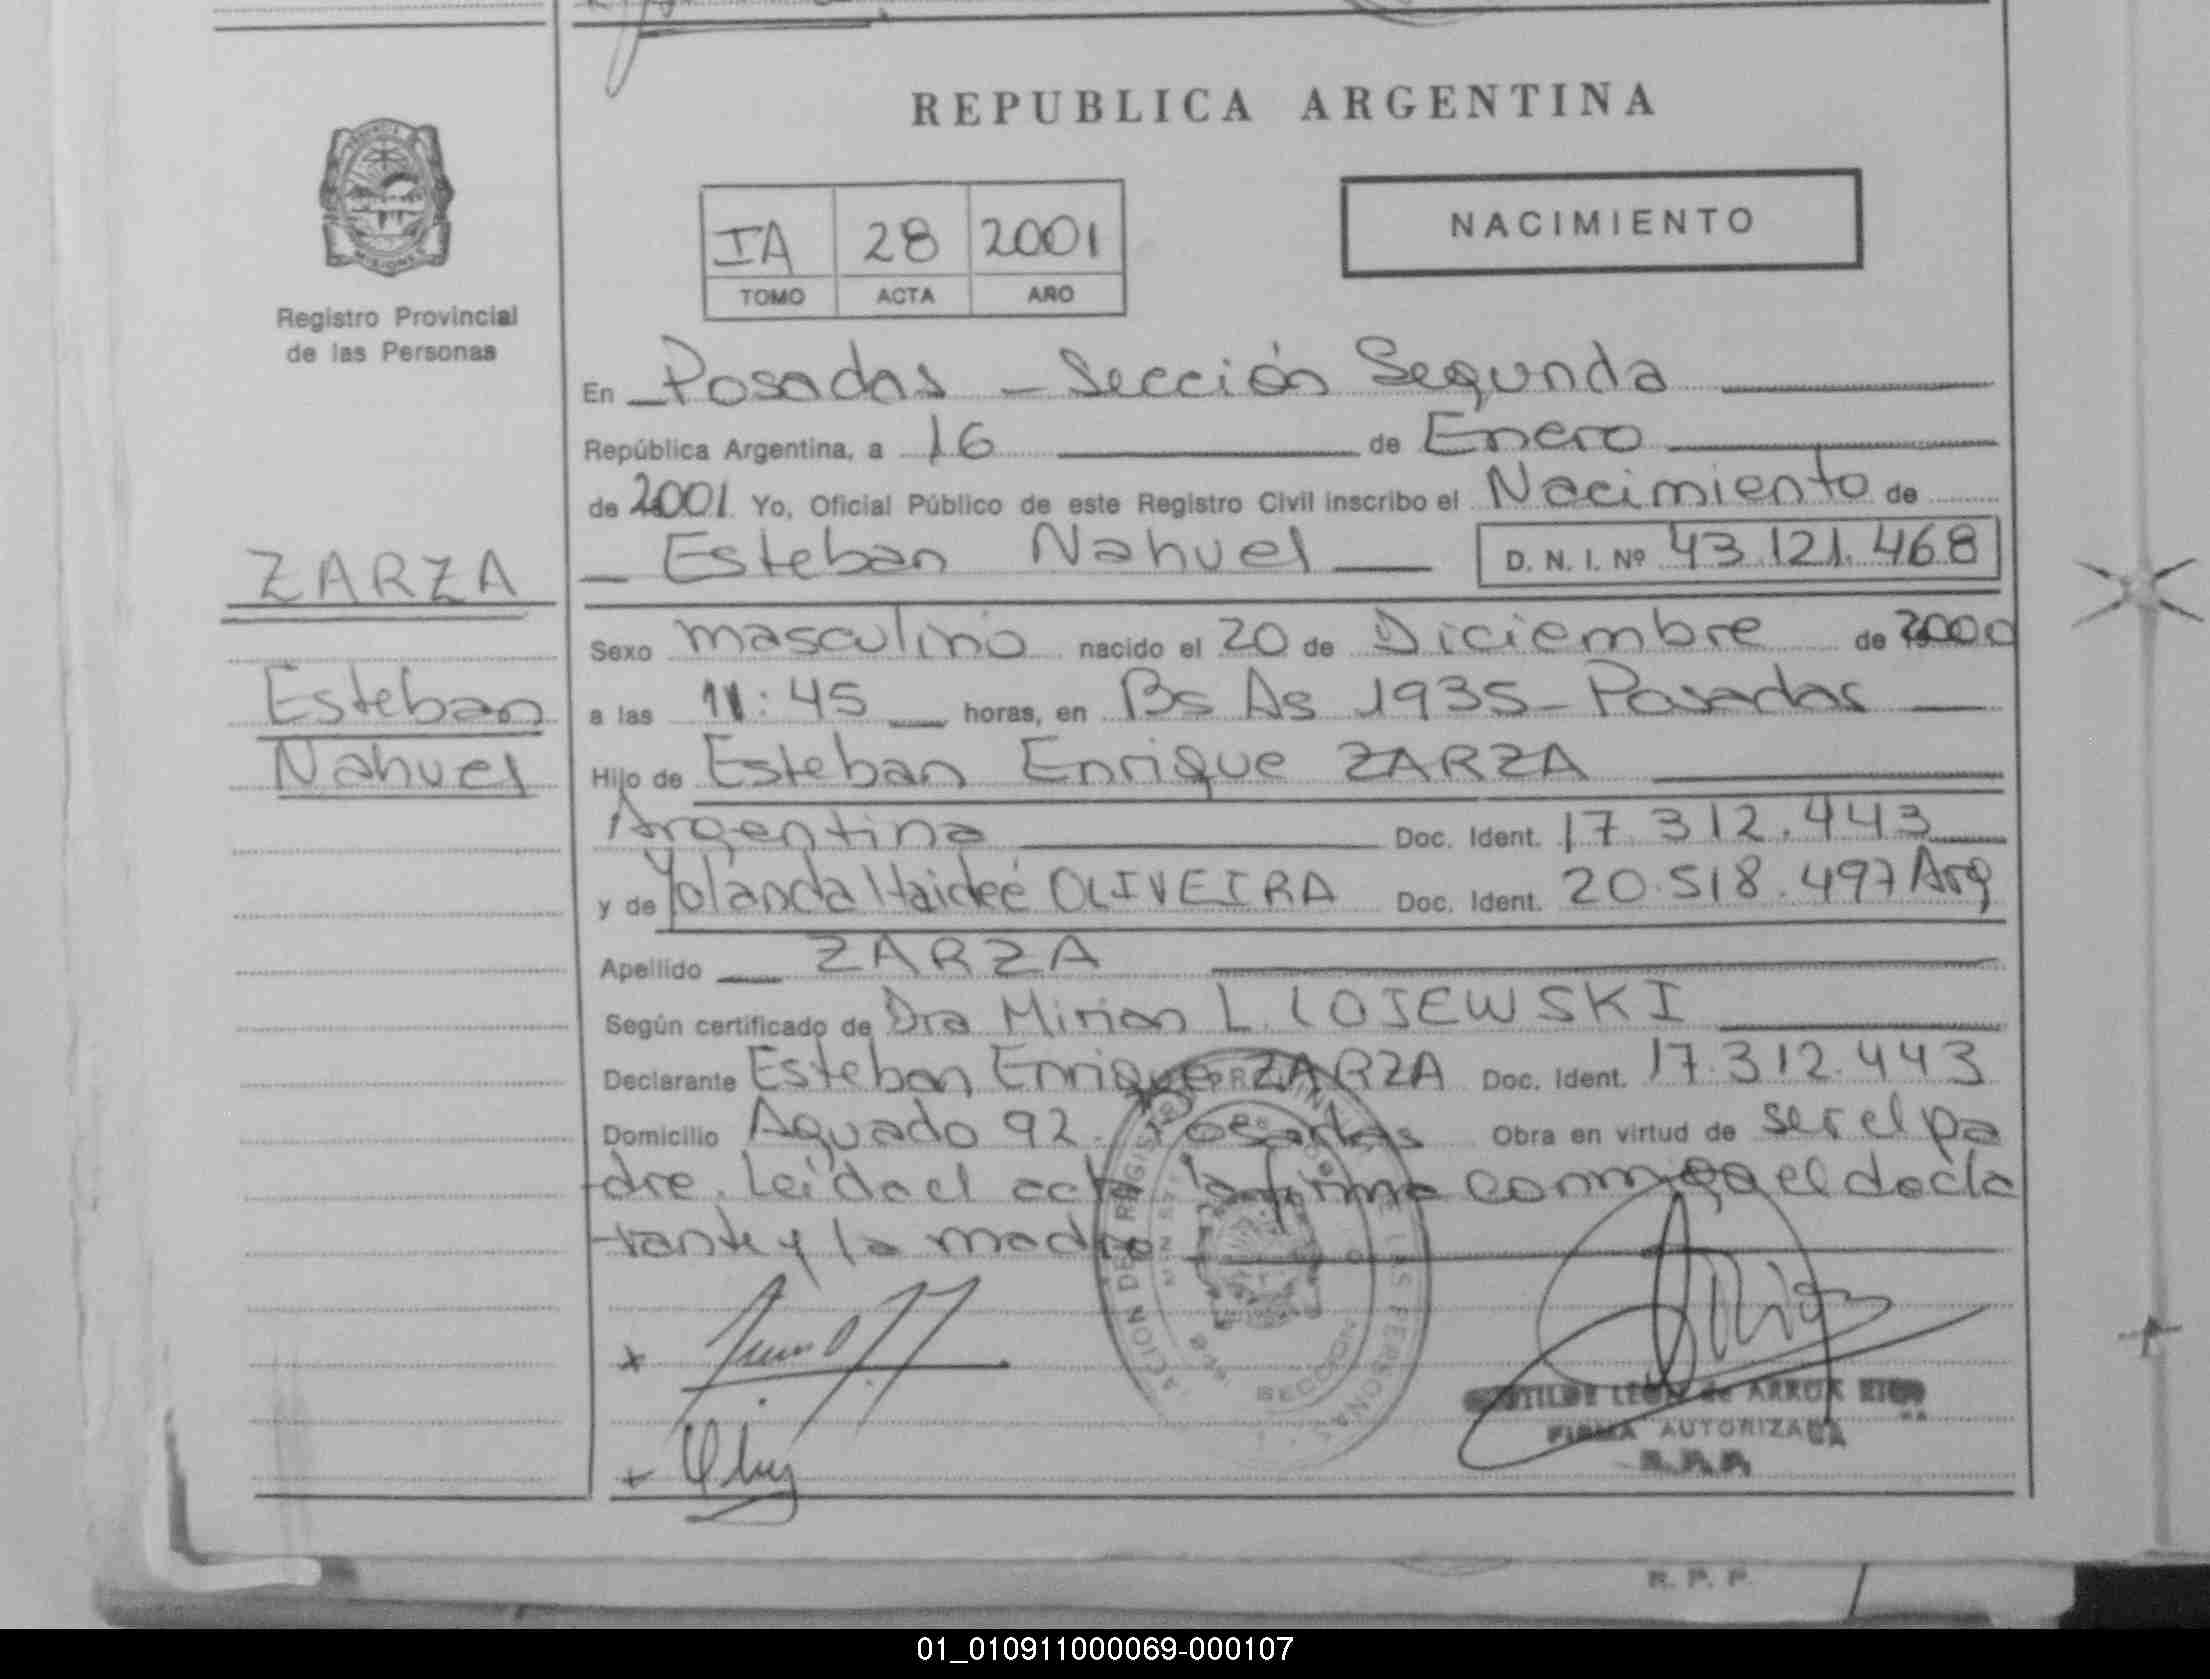 REPUBLICA ARGENTINA
MISIONES
Registro Provincial
de las Personas
NACIMIENTO
IA 28 2001
TOMO ACTA AÑO
En Posadas - Sección Segunda
República Argentina, a 16 de Enero
de 2001 Yo, Oficial Público de este Registro Civil inscribo el Nacimiento de
Esteban Nahuel D. N. I. Nº 43.121.468
ZARZA
Esteban
Nahuel
Sexo masculino nacido el 20 de Diciembre de 2000
a las 11:45 horas, en Bs As 1935 - Posadas
Hijo de Esteban Enrique ZARZA
Argentina Doc. Ident. 17.312.443
y de Yolanda Haideé OLIVEIRA Doc. Ident. 20.518.497 Arg
Apellido ZARZA
Según certificado de Dra Mirian L. LOJEWSKI
Declarante Esteban Enrique ZARZA Doc. Ident. 17.312.443
Domicilio Aguado 92. Posadas Obra en virtud de ser el pa
dre. Leída el acta la firma conmigo el decla
rante y la madre
SECCION
LEON de ARRUA
FIRMA AUTORIZADA
R.P.P.
R. P. P.
01_010911000069-000107